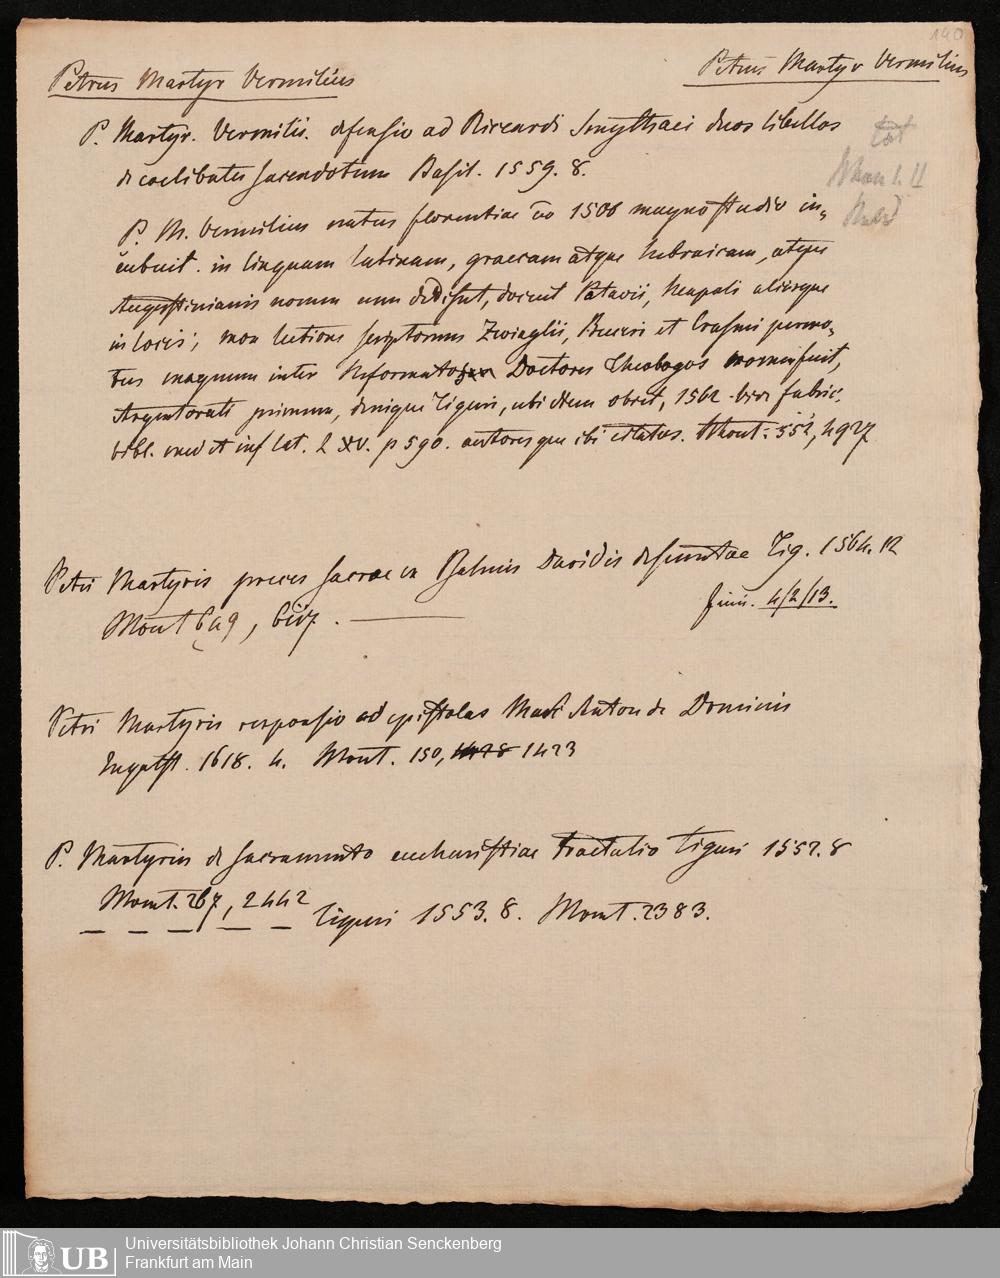 140
Petrus Martyr Vermilius
Petrus Martyr Vermilius
P. Martyr. Vermilii. defensio ad Riccardi Smythaei duos libellos
de caelibatu sacerdotum Basil. 1559. 8.
P. M. Vermilius natus florentiae 1500 magno studio in-
cubuit. in linguam latinam, graecam atque hebraicam, atque
Augustinianis nomen cum dedisset, docuit Patavii, Neapoli aliisque
in locis; mox lectione scriptorum Zwinglii, Buceri et Erasmi permo-
tus magnum inter Reformatos Doctores Theologos nomen fuit,
Argentorati primum, denique Tiguri, ubi idem obiit, 1562 fabric.
bibl. med et inf lat. L XV. p 590. autoresque ibi citatos. Mont: 552, 4927
Petri Martyris preces sacrae ex Psalmis Davidis desumtae Tig. 1564. 12
Mont 649,
4/2/13.
Petri Martyris responsio ad epistolas Marci Anton de Dominis
Ingolst. 1618. 4. Mont. 150, 1423
P. Martyris de sacramento eucharistiae tractatio Tiguri 1552. 8
Mont. 267, 2442
_ _ _ _ _ Tiguri 1553. 8. Mont. 2383.
UB
Universitätsbibliothek Johann Christian Senckenberg
Frankfurt am Main